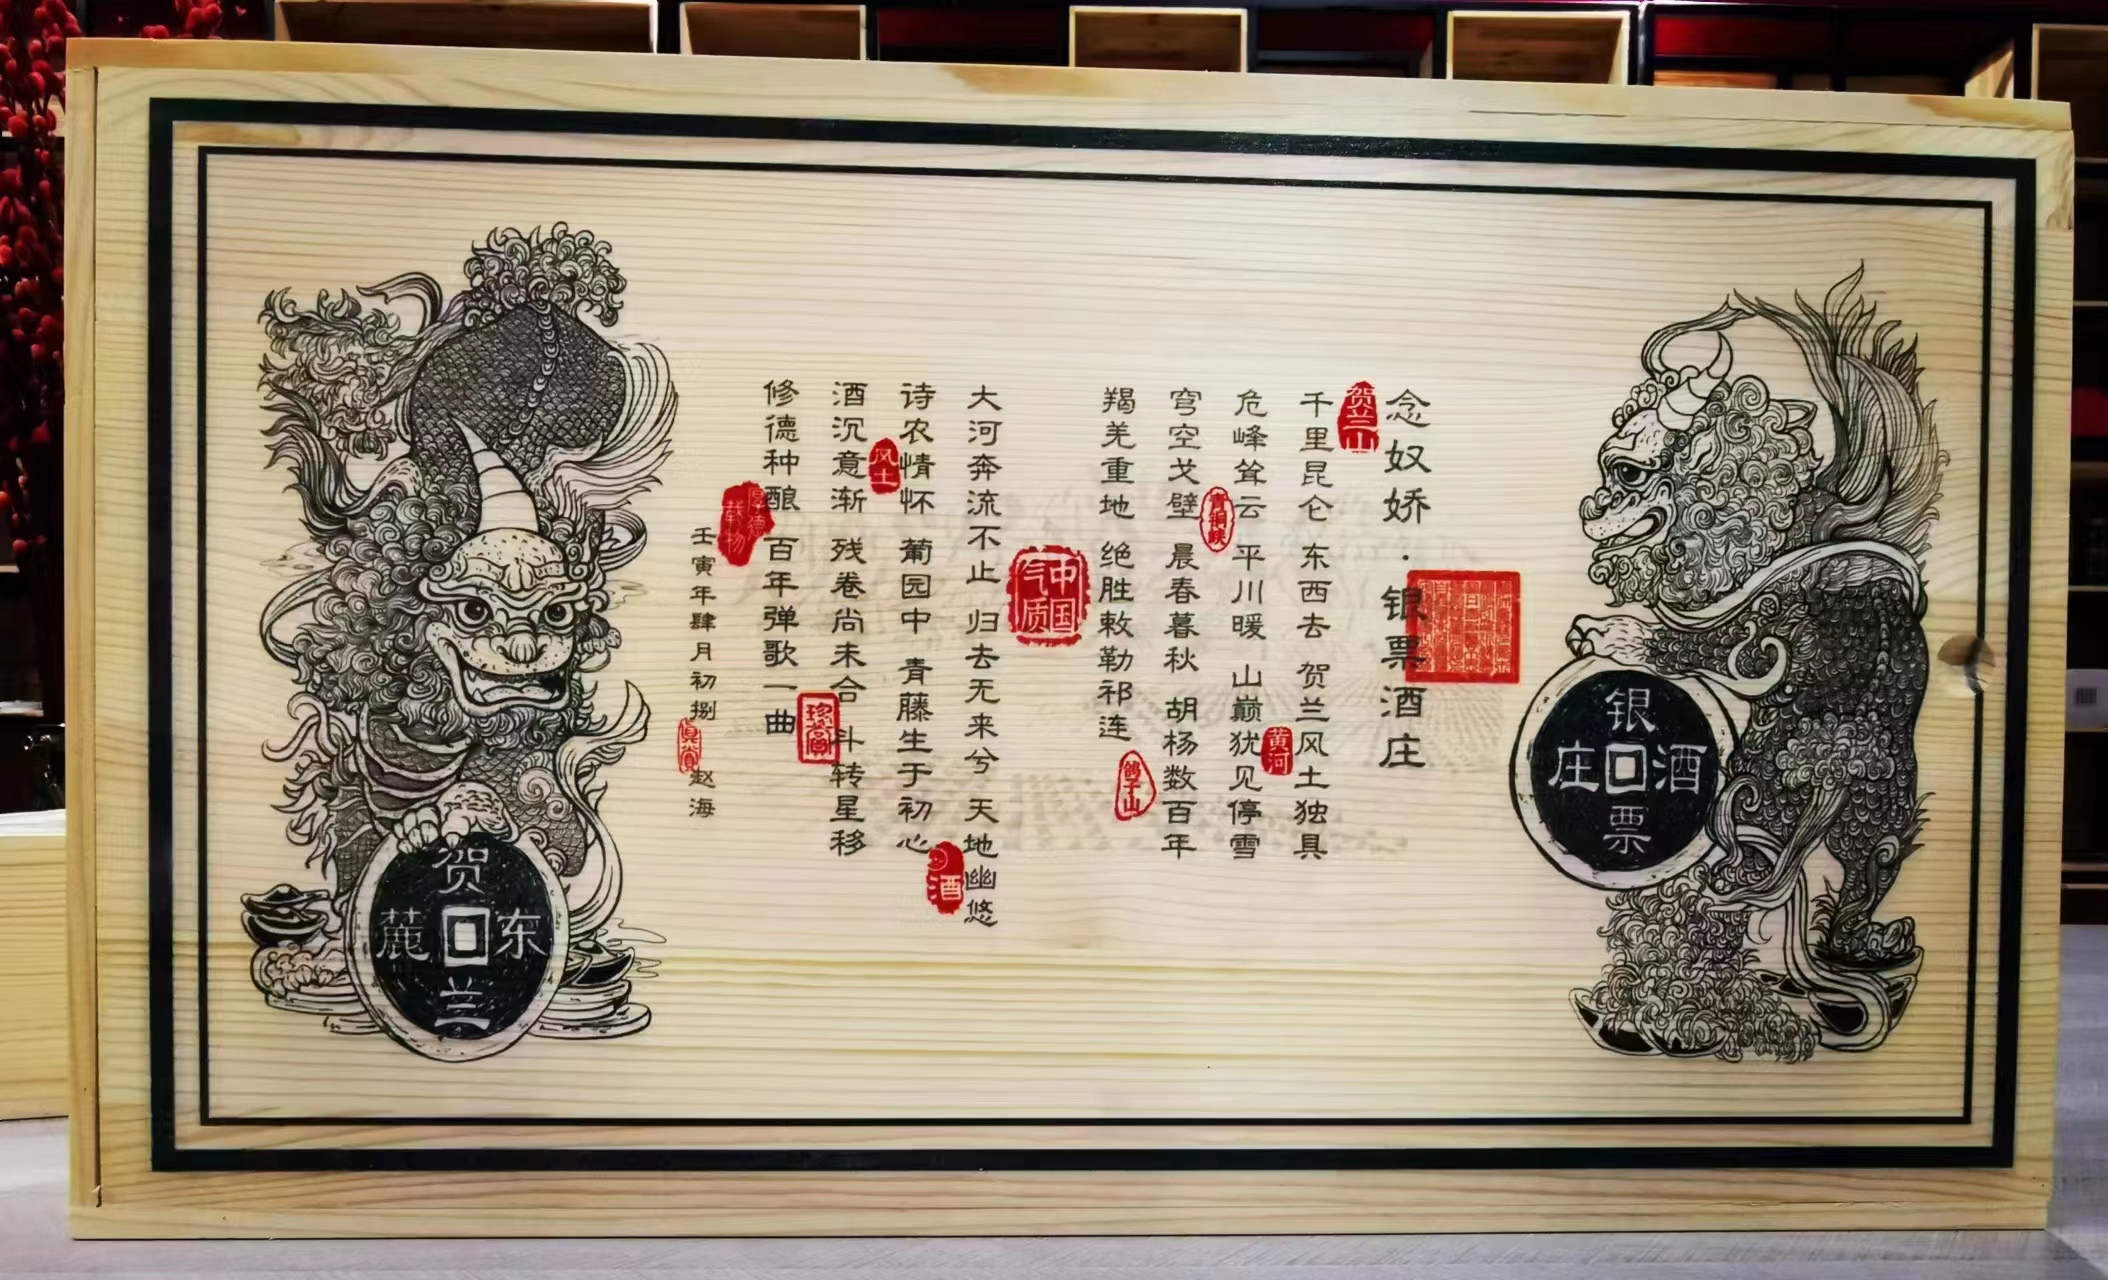 念奴娇·银票酒庄
贺兰山
千里昆仑 东西去 贺兰风土独具
黄河
危峰耸云 平川暖 山巅犹见停雪
青铜峡
穹空戈壁 晨春暮秋 胡杨数百年
鸽子山
羯羌重地 绝胜敕勒祁连
中国
气质
大河奔流不止 归去无来兮 天地幽悠
酒
诗农情怀 葡园中 青藤生于初心
风土
酒沉意渐 残卷尚未合 斗转星移
修德种酿 百年弹歌一曲
厚德
载物
壬寅年肆月初捌 赵海
真赏
银
庄 酒
票
贺
麓 东
兰